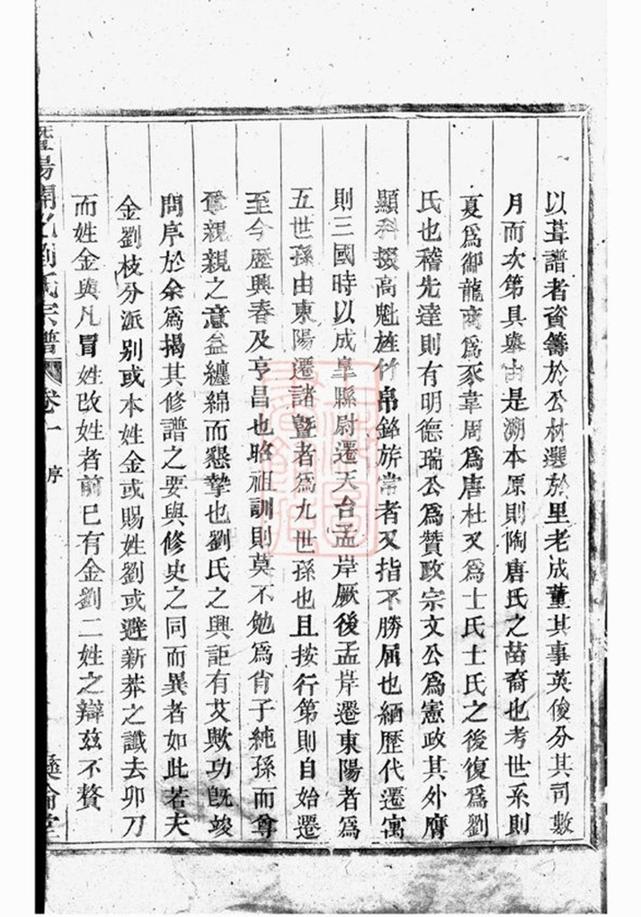 以葺譜者資籌於公材選於里老成董其事英俊分其司數
月而次第具舉由是溯本原則陶唐氏之苗裔也考世系則
夏爲御龍商爲豕韋周爲唐杜又爲士氏士氏之後復爲劉
氏也稽先達則有明德瑞公爲贊政宗文公爲憲政其外膺
顯科掇高魁旌竹帛銘旂常者又指不勝屈也緬歷代遷寓
則三國時以成皐縣尉遷天台孟岸厥後孟岸遷東陽者爲
五世孫由東陽遷諸暨者爲九世孫也且按行第則自始遷
至今歷興春及亨昌也昭祖訓則莫不勉爲肖子純孫而尊
尊親親之意益纏綿而懇摯也劉氏之興詎有艾歟功旣竣
問序於余爲揭其修譜之要與修史之同而異者如此若夫
金劉枝分派别或本姓金或賜姓劉或避新莽之讖去卯刀
而姓金與凡冒姓改姓者前已有金劉二姓之辯玆不贅
暨陽開化劉氏宗譜 卷一 序 彝倫堂